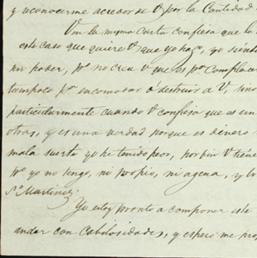 y reconocerme acreedor de V. por la Cantidad
En la misma carta confiesa que lo
este caso que quiere V. que yo haga, yo siento
mi poder, no crea V. que es por Complacer
tampoco pr. incomodar o destruir a V, sino
particularmente cuando V. confiesa que es un
otras, y es una verdad porque es dinero
mala suerte yo he tenido peor, por fin V. tiene
pr. yo no tengo, ni propio, ni ageno, y lo
Sr. Martinez.
Yo estoy pronto a componer este
andar con Cabilosidades, y espero me pro